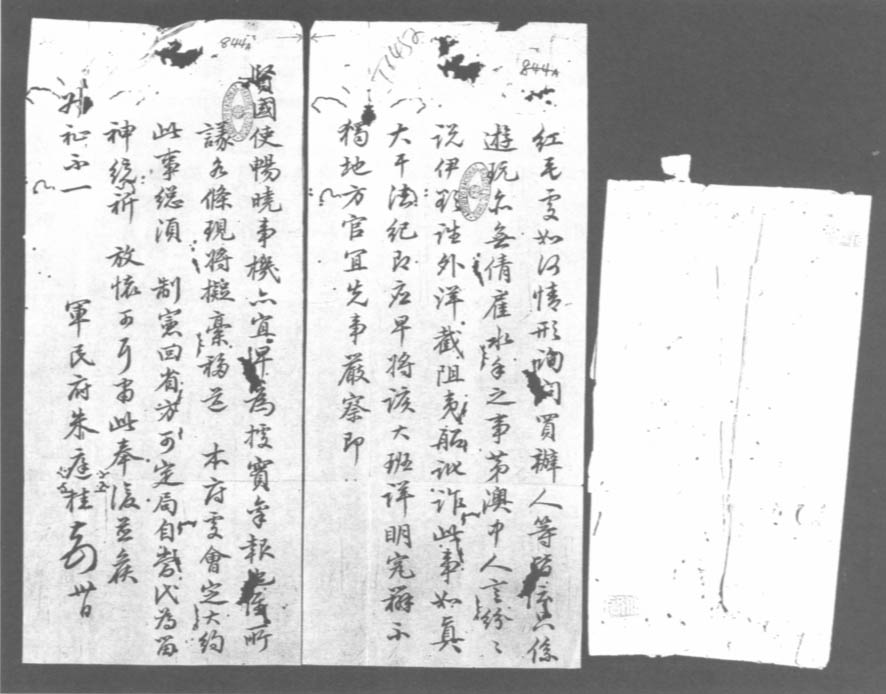 844A
T1452
紅毛處如何情形詢問買辦人等皆 係
遊玩亦無倩雇水手之事第澳中人言紛〻
說伊 往外洋截阻夷船訛詐此事如真
大干法紀即應早將該大班詳明究辦不
獨地方官宜先事嚴察即
844A
賢國使暢曉事機亦宜早為據實稟報也 所
議各條現將擬稟稿送 本府處會定大約
此事總須 制憲回省方可定局自當代為留
神統祈 放懷可耳耑此奉復並候
升祉不一
軍民府朱庭桂 卅日